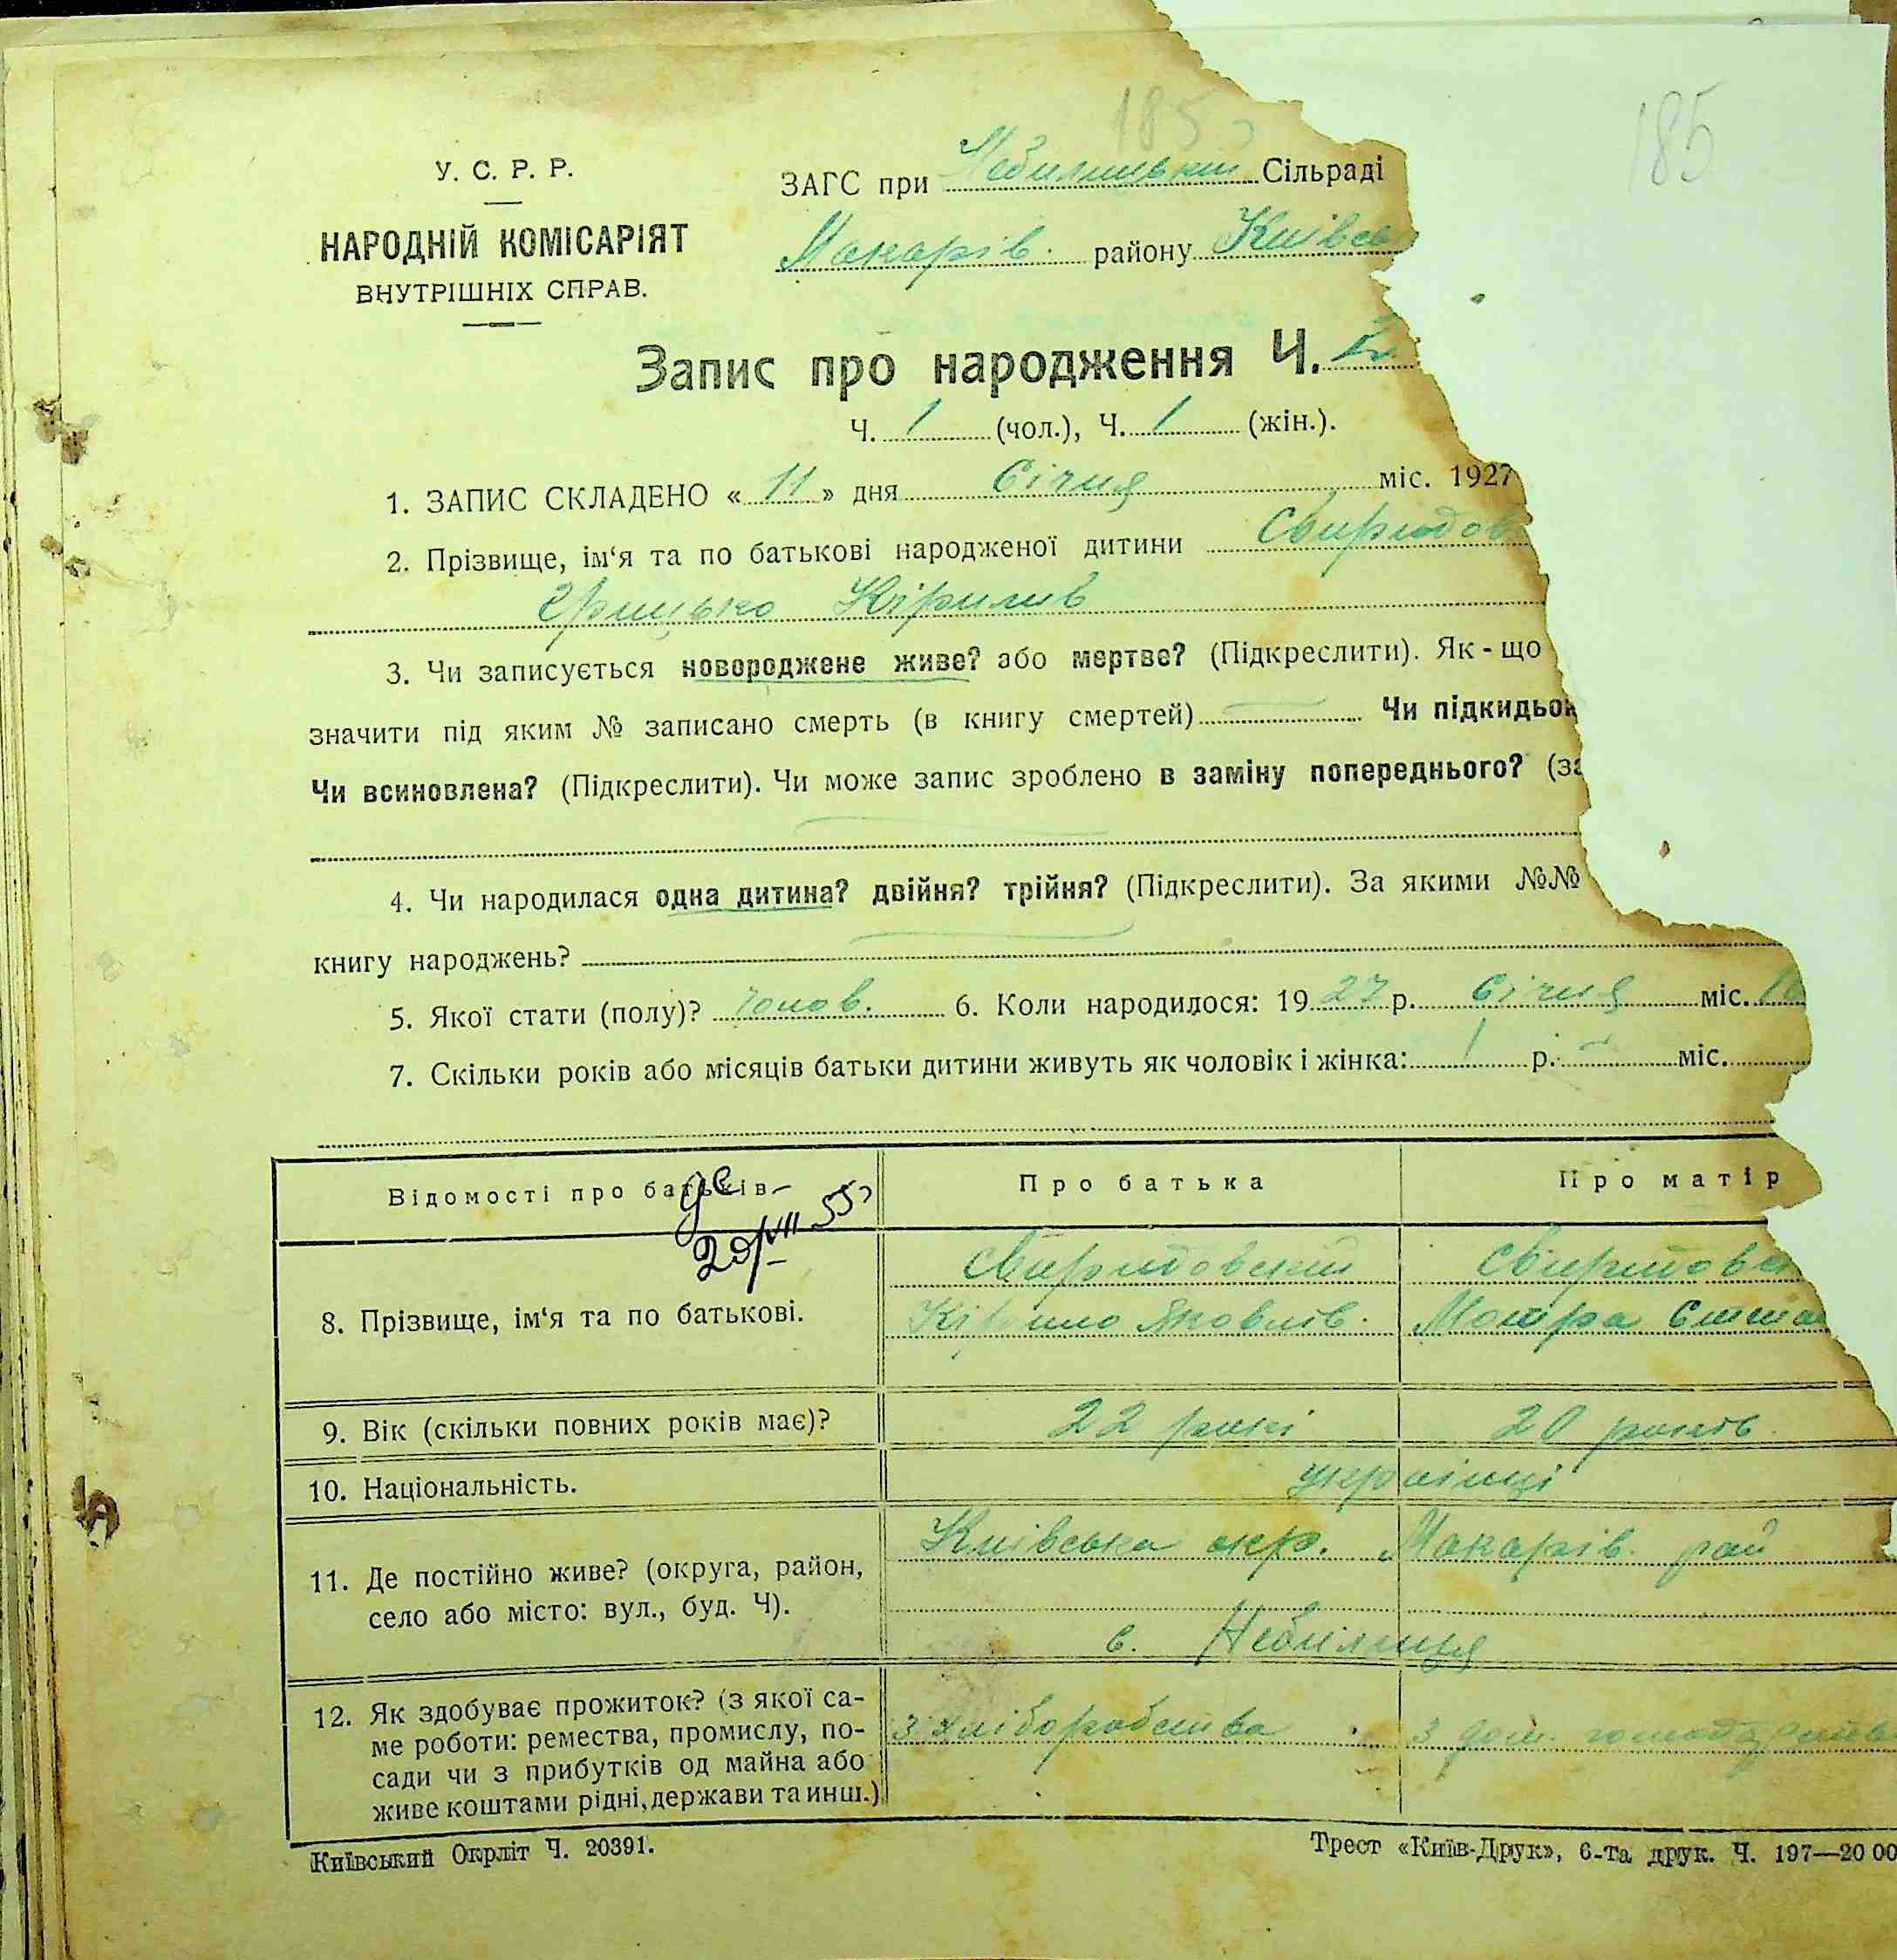 185
185
У. С. Р. Р.
НАРОДНІЙ КОМІСАРІЯТ
ВНУТРІШНІХ СПРАВ.
ЗАГС при Небилицькій Сільраді
Макарів. району Київсь
Запис про народження Ч. 2
Ч. 1 (чол.), Ч. 1 (жін.).
1. ЗАПИС СКЛАДЕНО « 11 » дня Січня міс. 1927
2. Прізвище, ім‘я та по батькові народженої дитини Свиридов
Грицько Кірилів
3. Чи записується новороджене живе? або мертве? (Підкреслити). Як-що
значити під яким № записано смерть (в книгу смертей) Чи підкидьок
Чи всиновлена? (Підкреслити). Чи може запис зроблено в заміну попереднього? (за
4. Чи народилася одна дитина? двійня? трійня? (Підкреслити). За якими №№
книгу народжень?
5. Якої стати (полу)? чолов. 6. Коли народилося: 19 27 р. Січня міс. 10
7. Скільки років або місяців батьки дитини живуть як чоловік і жінка: 1 р. – міс.
Відомості про батьків
Про батька
Про матір
8. Прізвище, ім‘я та по батькові.
Свиридовский
Кірило Яковлів.
Свиридовс
Мотра Степа
9. Вік (скільки повних років має)?
22 роки
20 років
10. Національність.
українці
11. Де постійно живе? (округа, район,
село або місто: вул., буд. Ч).
Київська окр. Макарів. рай
с. Небилиця
12. Як здобуває прожиток? (з якої са-
ме роботи: ремества, промислу, по-
сади чи з прибутків од майна або
живе коштами рідні, держави та инш.)
з хліборобства
з дом. господарств
Київський Окрліт Ч. 20391.
Трест «Київ-Друк», 6-та друк. Ч. 197—20 00